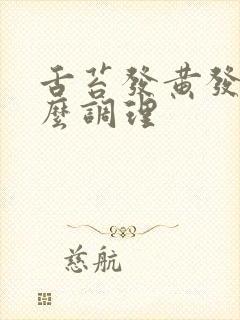 舌苔發黃發
麼調理
慈航